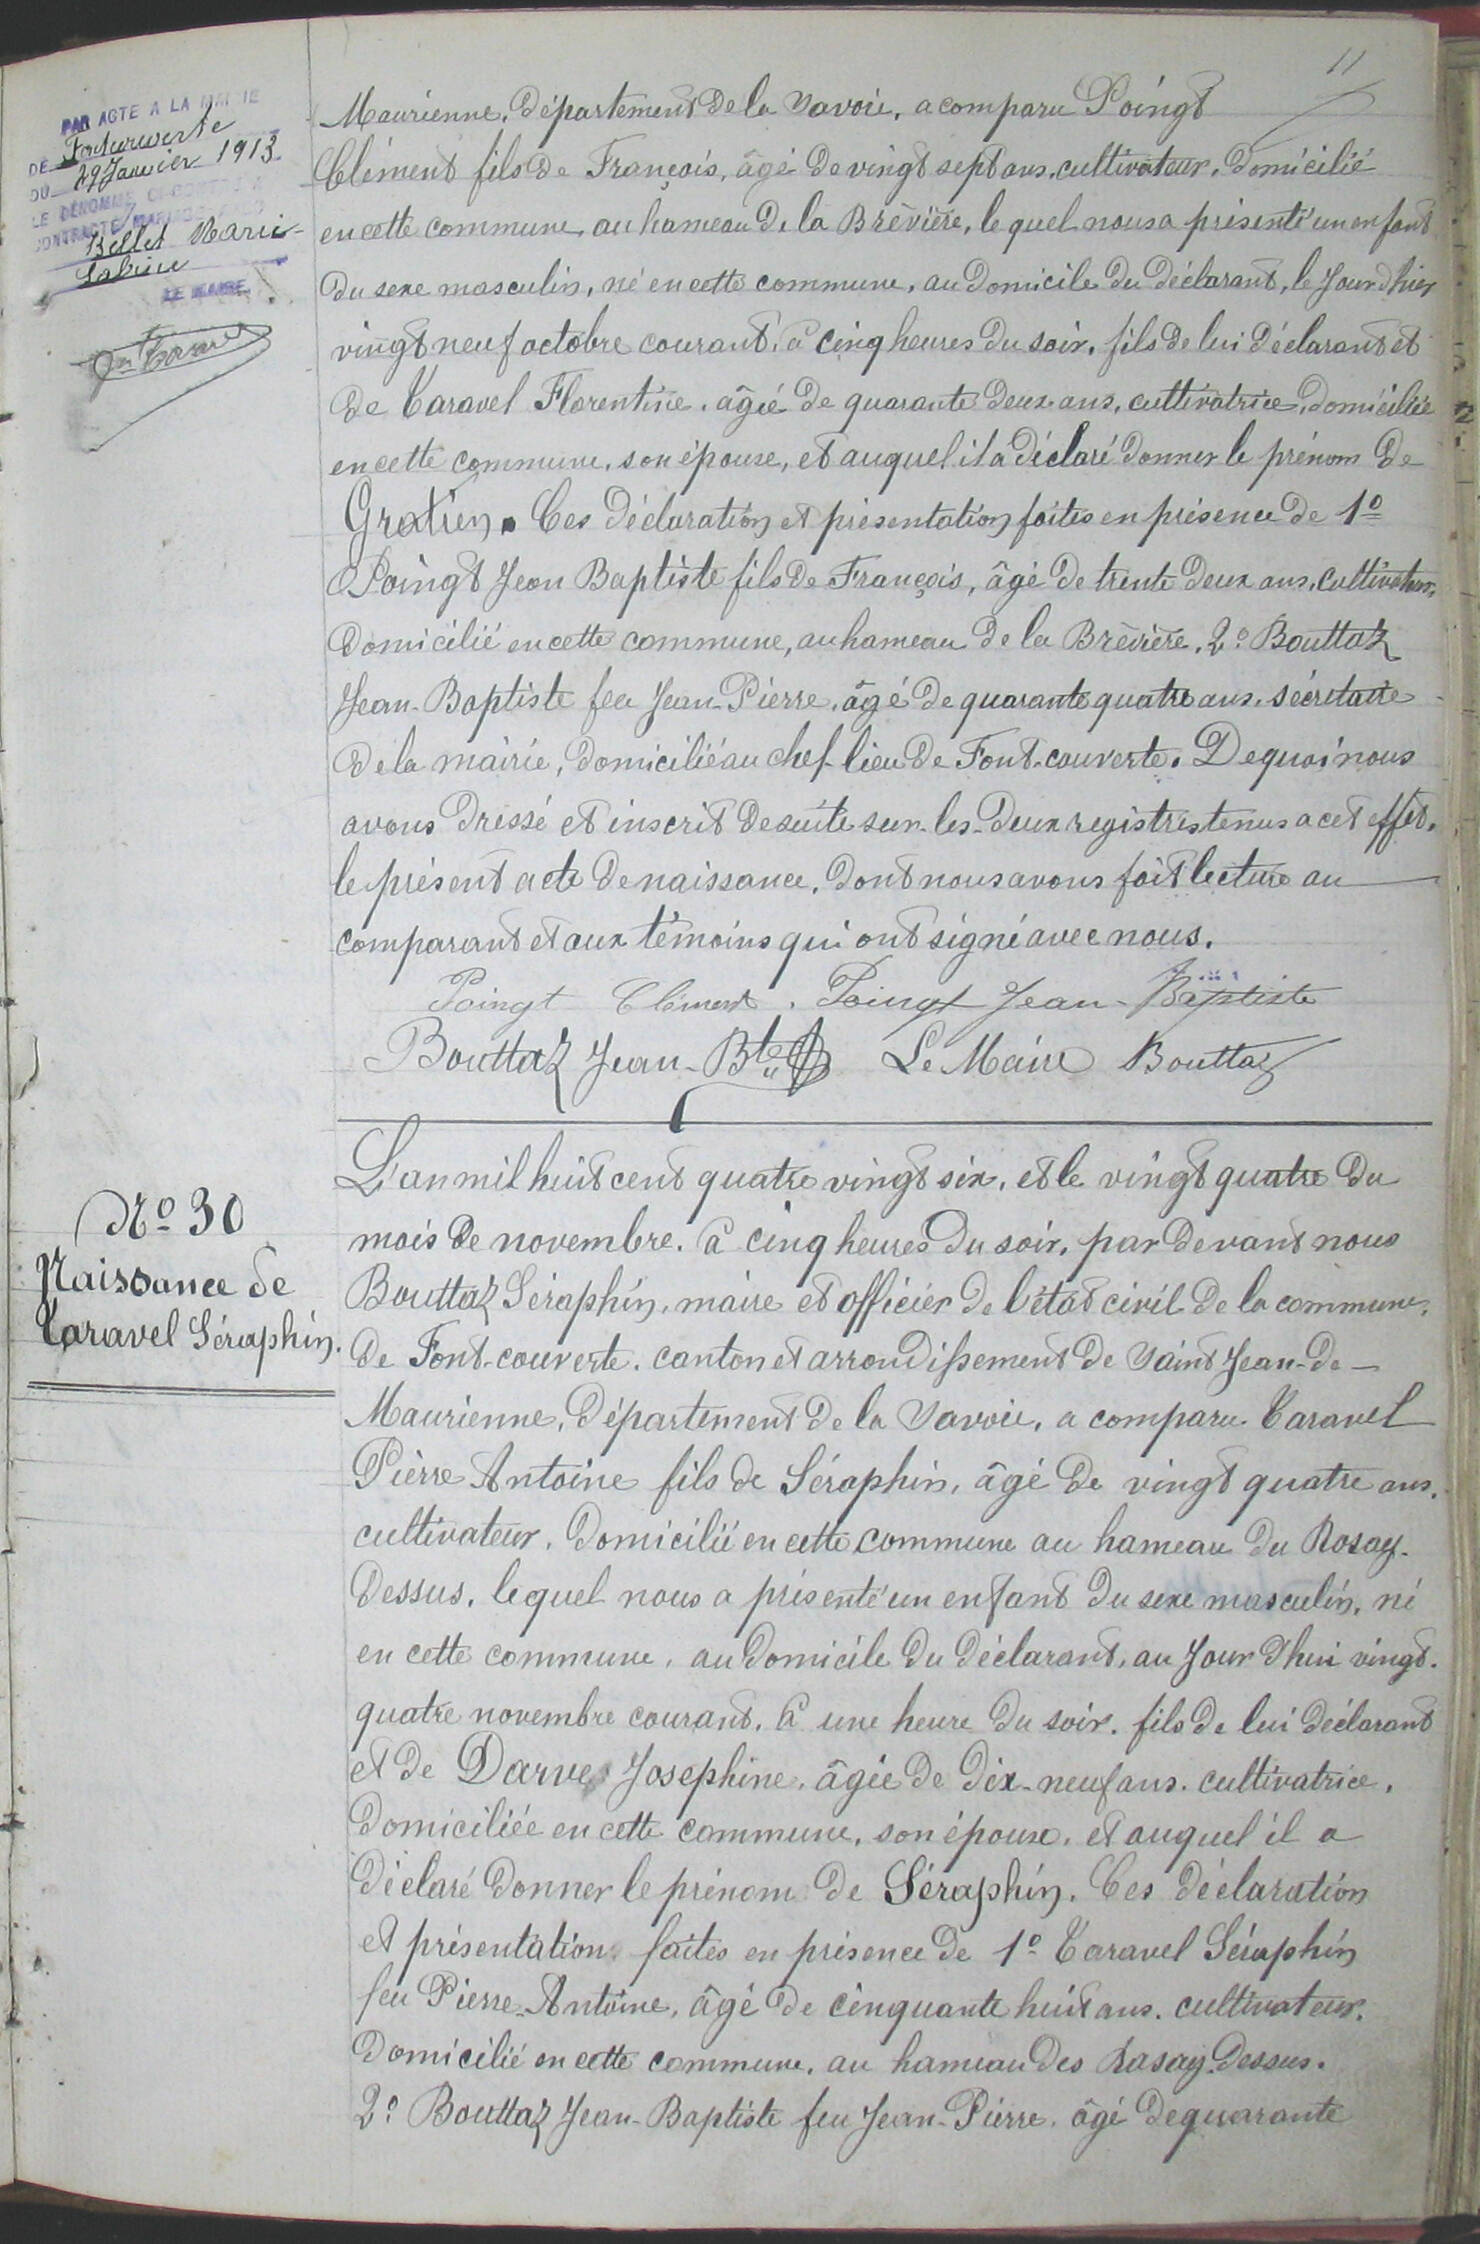 11
PAR ACTE A LA MAIRIE
DE Fontcouverte
DU 29 Janvier 1913
LE DÉNOMMÉ CI-CONTRE A
CONTRACTÉ MARIAGE AVEC
Bellet Marie-
Sabine
LE MAIRE
Maurienne, département de la Savoie, a comparu Poingt
Clément fils de François, âgé de vingt sept ans, cultivateur, domicilié
en cette commune au hameau de la Brévière, le quel nous a présenté un enfant
du sexe masculin, né en cette commune, au domicile du déclarant, le Jour d'hier
vingt neuf octobre courant, à cinq heures du soir, fils de lui déclarant et
de Taravel Florentine, âgée de quarante deux ans, cultivatrice, domiciliée
en cette commune, son épouse, et auquel il a déclaré donner le prénom de
Gratien. Ces déclaration et présentation faites en présence de 1º
Poingt Jean Baptiste fils de François, âgé de trente deux ans, cultivateur,
domicilié en cette commune, au hameau de la Brévière, 2º Bouttaz
Jean-Baptiste feu Jean-Pierre, âgé de quarante quatre ans, sécretaire
de la mairie, domicilié au chef-lieu de Font-couverte. De quoi nous
avons dressé et inscrit de suite sur les deux registres tenus a cet effet,
le présent acte de naissance, dont nous avons fait lecture au
comparant et aux témoins qui ont signé avec nous.
Poingt Clément. Poingt Jean-Baptiste
Bouttaz Jean-Bte Le Maire Bouttaz
Nº 30
Naissance de
Taravel Séraphin.
L'an mil huit cent quatre vingt six, et le vingt quatre du
mois de novembre, à cinq heures du soir, par devant nous
Bouttaz Séraphin, maire et officier de l'état civil de la commune,
de Font-couverte, canton et arrondissement de Saint Jean-de-
Maurienne, département de la Savoie, a comparu Taravel
Pierre Antoine fils de Séraphin, âgé de vingt quatre ans,
cultivateur, domicilié en cette commune au hameau du Rosay-
dessus, lequel nous a présenté un enfant du sexe masculin, né
en cette commune, au domicile du déclarant, au Jour d'hui vingt-
quatre novembre courant, à une heure du soir, fils de lui déclarant
et de Darve Josephine, âgée de dix-neuf ans, cultivatrice,
domiciliée en cette commune, son épouse, et auquel il a
déclaré donner le prénom de Séraphin. Ces déclaration
et présentation faites en présence de 1º Taravel Séraphin
feu Pierre-Antoine, âgé de cinquante huit ans, cultivateur,
domicilié en cette commune, au hameau des Rasay-dessus.
2º Bouttaz Jean-Baptiste feu Jean-Pierre, âgé de quarante